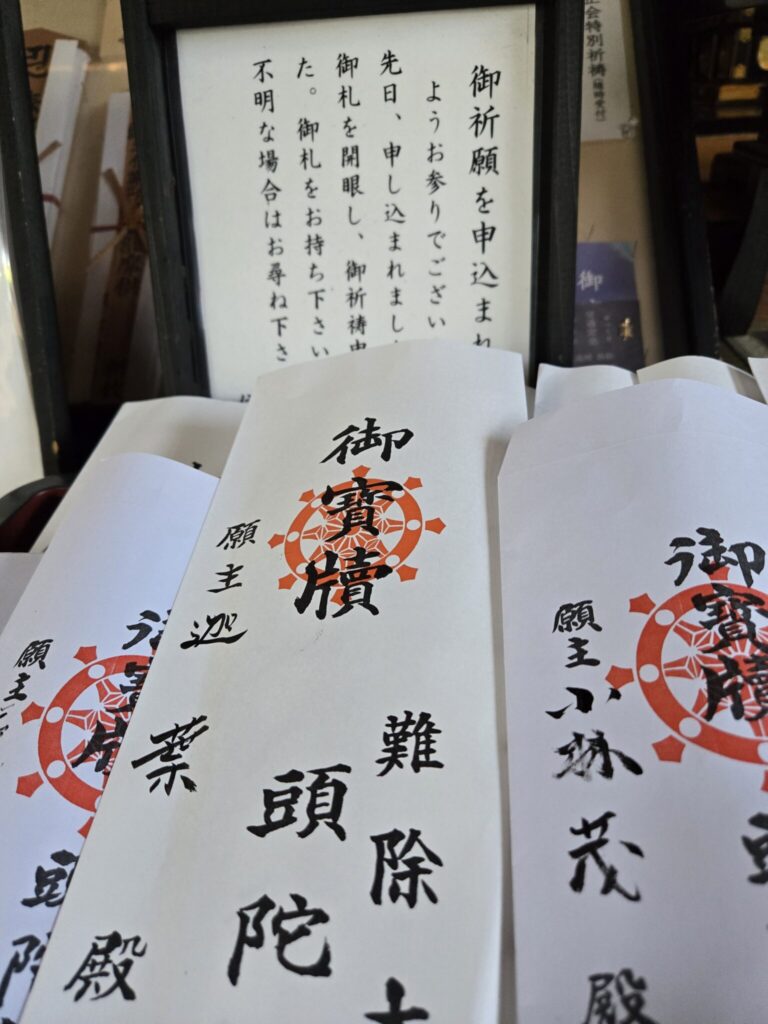 御祈願を申込まれ
ようお参りでござい
先日、申し込まれまし
御札を開眼し、御祈祷申
た。御札をお持ち下さい
不明な場合はお尋ね下さ
会特別祈祷(随時受付)
御
御寶牘
願主 迦葉 殿
難除
頭陀
御寶牘
願主 小林茂 殿
御寶牘
願主
頭陀